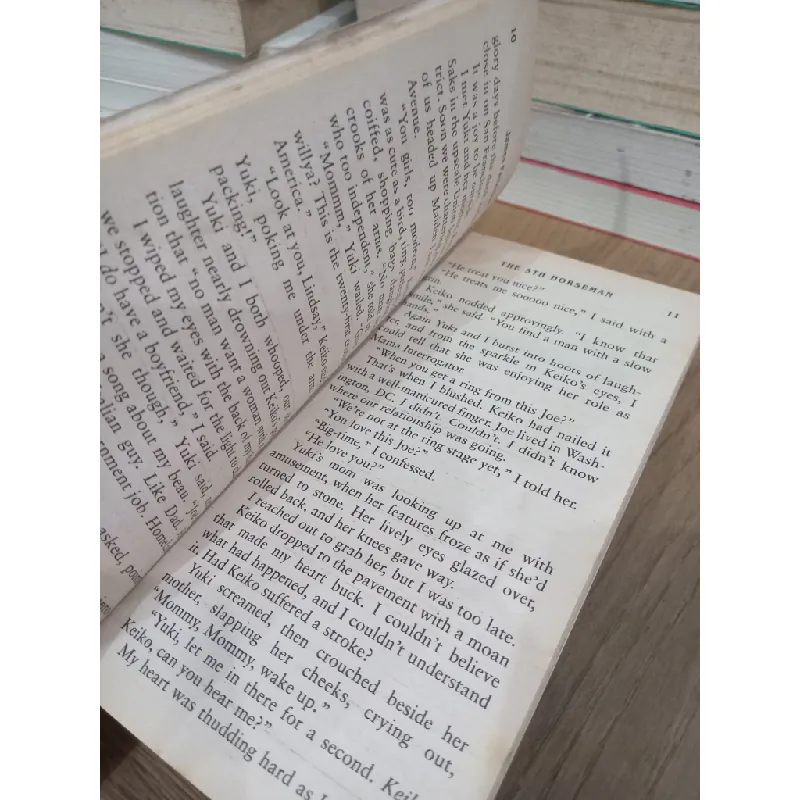 10
glory days before the
close in on San Fran
It was a joy to be
I met Yuki and her
Saks in the upscale
trict. Soon we were
of us headed up Maiden
Avenue.
"You girls, too modern,"
was as cute as a bird, tiny,
coiffed, shopping bags
crooks of her arms. "No man
who too independent," she
"Mommm," Yuki wailed.
willya? This is the twenty-
America."
"Look at you, Lindsay," Keiko
Yuki, poking me under the
packing!"
Yuki and I both whooped, our
laughter nearly drowning our Keiko's
tion that "no man want a woman with
I wiped my eyes with the back of my
we stopped and waited for the light to
"I do have a boyfriend," I said.
she though," Yuki said,
a song about my beau.
guy. Like Dad.
job.
asked,
THE 5TH HORSEMAN
11
"He treat you nice?"
"He treats me sooooo nice," I said with a
Keiko nodded approvingly. "I know that
smile," she said. "You find a man with a slow
hands."
Again Yuki and I burst into hoots of laugh-
ter, and from the sparkle in Keiko's eyes, I
could tell that she was enjoying her role as
Mama Interrogator.
"When you get a ring from this Joe?"
That's when I blushed. Keiko had nailed it
with a well-manicured finger. Joe lived in Wash-
ington, DC. I didn't. Couldn't. I didn't know
where our relationship was going.
"We're not at the ring stage yet," I told her.
"You love this Joe?"
"Big-time," I confessed.
"He love you?"
Yuki's mom was looking up at me with
amusement, when her features froze as if she'd
turned to stone. Her lively eyes glazed over,
rolled back, and her knees gave way.
I reached out to grab her, but I was too late.
Keiko dropped to the pavement with a moan
that made my heart buck. I couldn't believe
what had happened, and I couldn't understand
it. Had Keiko suffered a stroke?
Yuki screamed, then crouched beside her
mother, slapping her cheeks, crying out,
"Mommy, Mommy, wake up."
"Yuki, let me in there for a second. Keiko.
Keiko, can you hear me?"
My heart was thudding hard as I